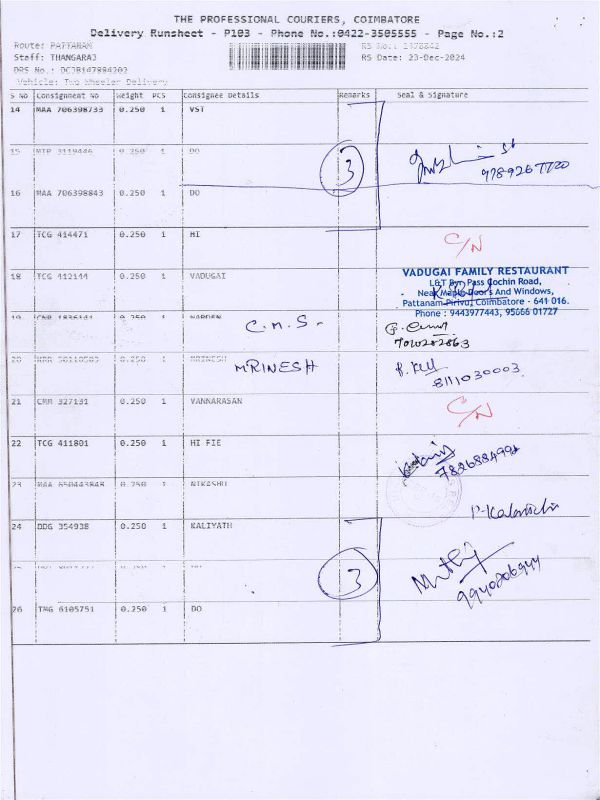 THE PROFESSIONAL COURIERS, COIMBATORE
Delivery Runsheet - P103 - Phone No.:0422-3505555 - Page No.:2
Route: PATTANAM
RS No.: 2478842
Staff: THANGARAJ
RS Date: 23-Dec-2024
DRS No.: DCJB147884202
Vehicle: Two Wheeler Delivery
S No Consignment No Weight PCS Consignee Details Remarks Seal & Signature
14 MAA 706398733 0.250 1 VST
15 MTP 3119446 0.250 1 DO
3
9789267720
16 MAA 706398843 0.250 1 DO
17 TCG 414471 0.250 1 HI
C/N
18 TCG 412144 0.250 1 VADUGAI
VADUGAI FAMILY RESTAURANT
L&T Byn Pass Cochin Road,
Near Maple Doors And Windows,
Pattanam Pirivu, Coimbatore - 641 016.
Phone : 9443977443, 95666 01727
19 CNR 1836141 0.250 1 NARDEN
C.M.S.
7010202863
20 0.250 1 MRINESH
MRINESH
8111030003
21 CMM 327131 0.250 1 VANNARASAN
C/N
22 TCG 411801 0.250 1 HI FIE
7826884992
23 MAA 650443848 0.250 1 NIKASHU
24 DDG 354938 0.250 1 KALIYATH
3
9940206944
26 TMG 6105751 0.250 1 DO